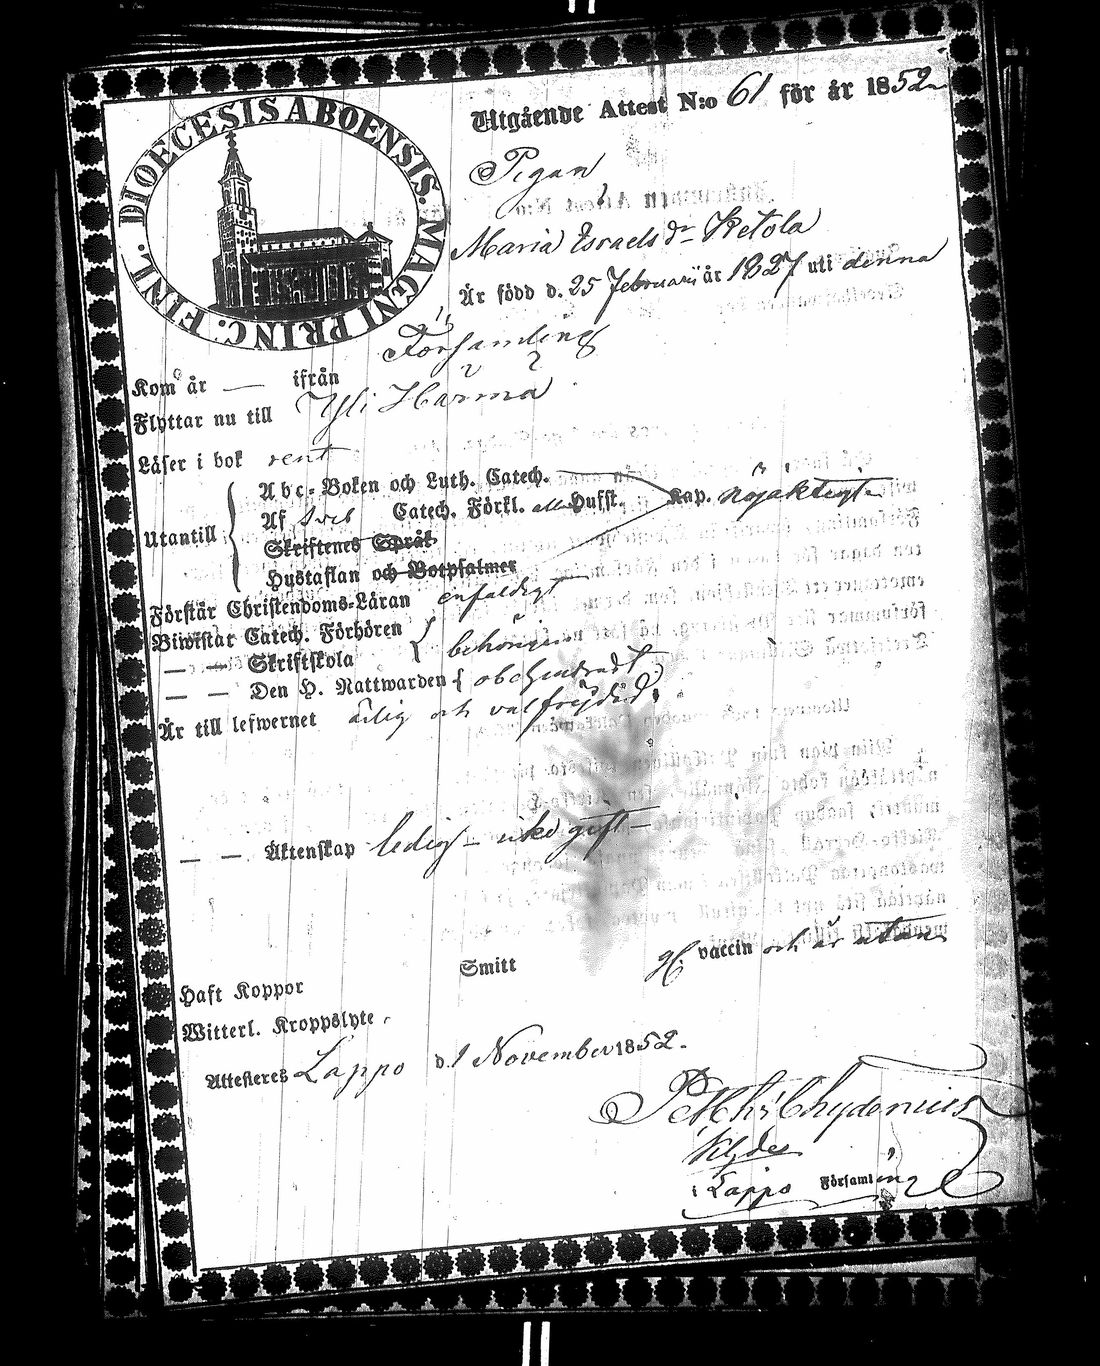 DIOECESIS ABOENSIS. MAGNI PRINC: FINL.
Utgående Attest N:o 61 för år 1852
Pigan
Maria Israels dr Ketola
Är född d. 25 Februarii år 1827 uti denna
Församling
Kom år — ifrån
Flyttar nu till Yli Härmä
Läser i bok rent
Utantill
Abc-Boken och Luth. Catech.
Af Catech. Förkl. Husst. Kap. nöjaktigt
Skriftenes Språk
Hustaflan och Botpsalmer
Förstår Christendoms-Läran enfaldigt
Biwistat Catech. Förhören
— — Skriftskola behörigen
— — Den H. Nattwarden obehindradt
Är till lefwernet ärlig och välfräjdad
— — Äktenskap ledig – icke gift –
Smitt vaccin och är utan
Haft Koppor
Witterl. Kroppslyte
Attesteres Lappo d. 1 November 1852.
Chydenius
i Lappo Församling